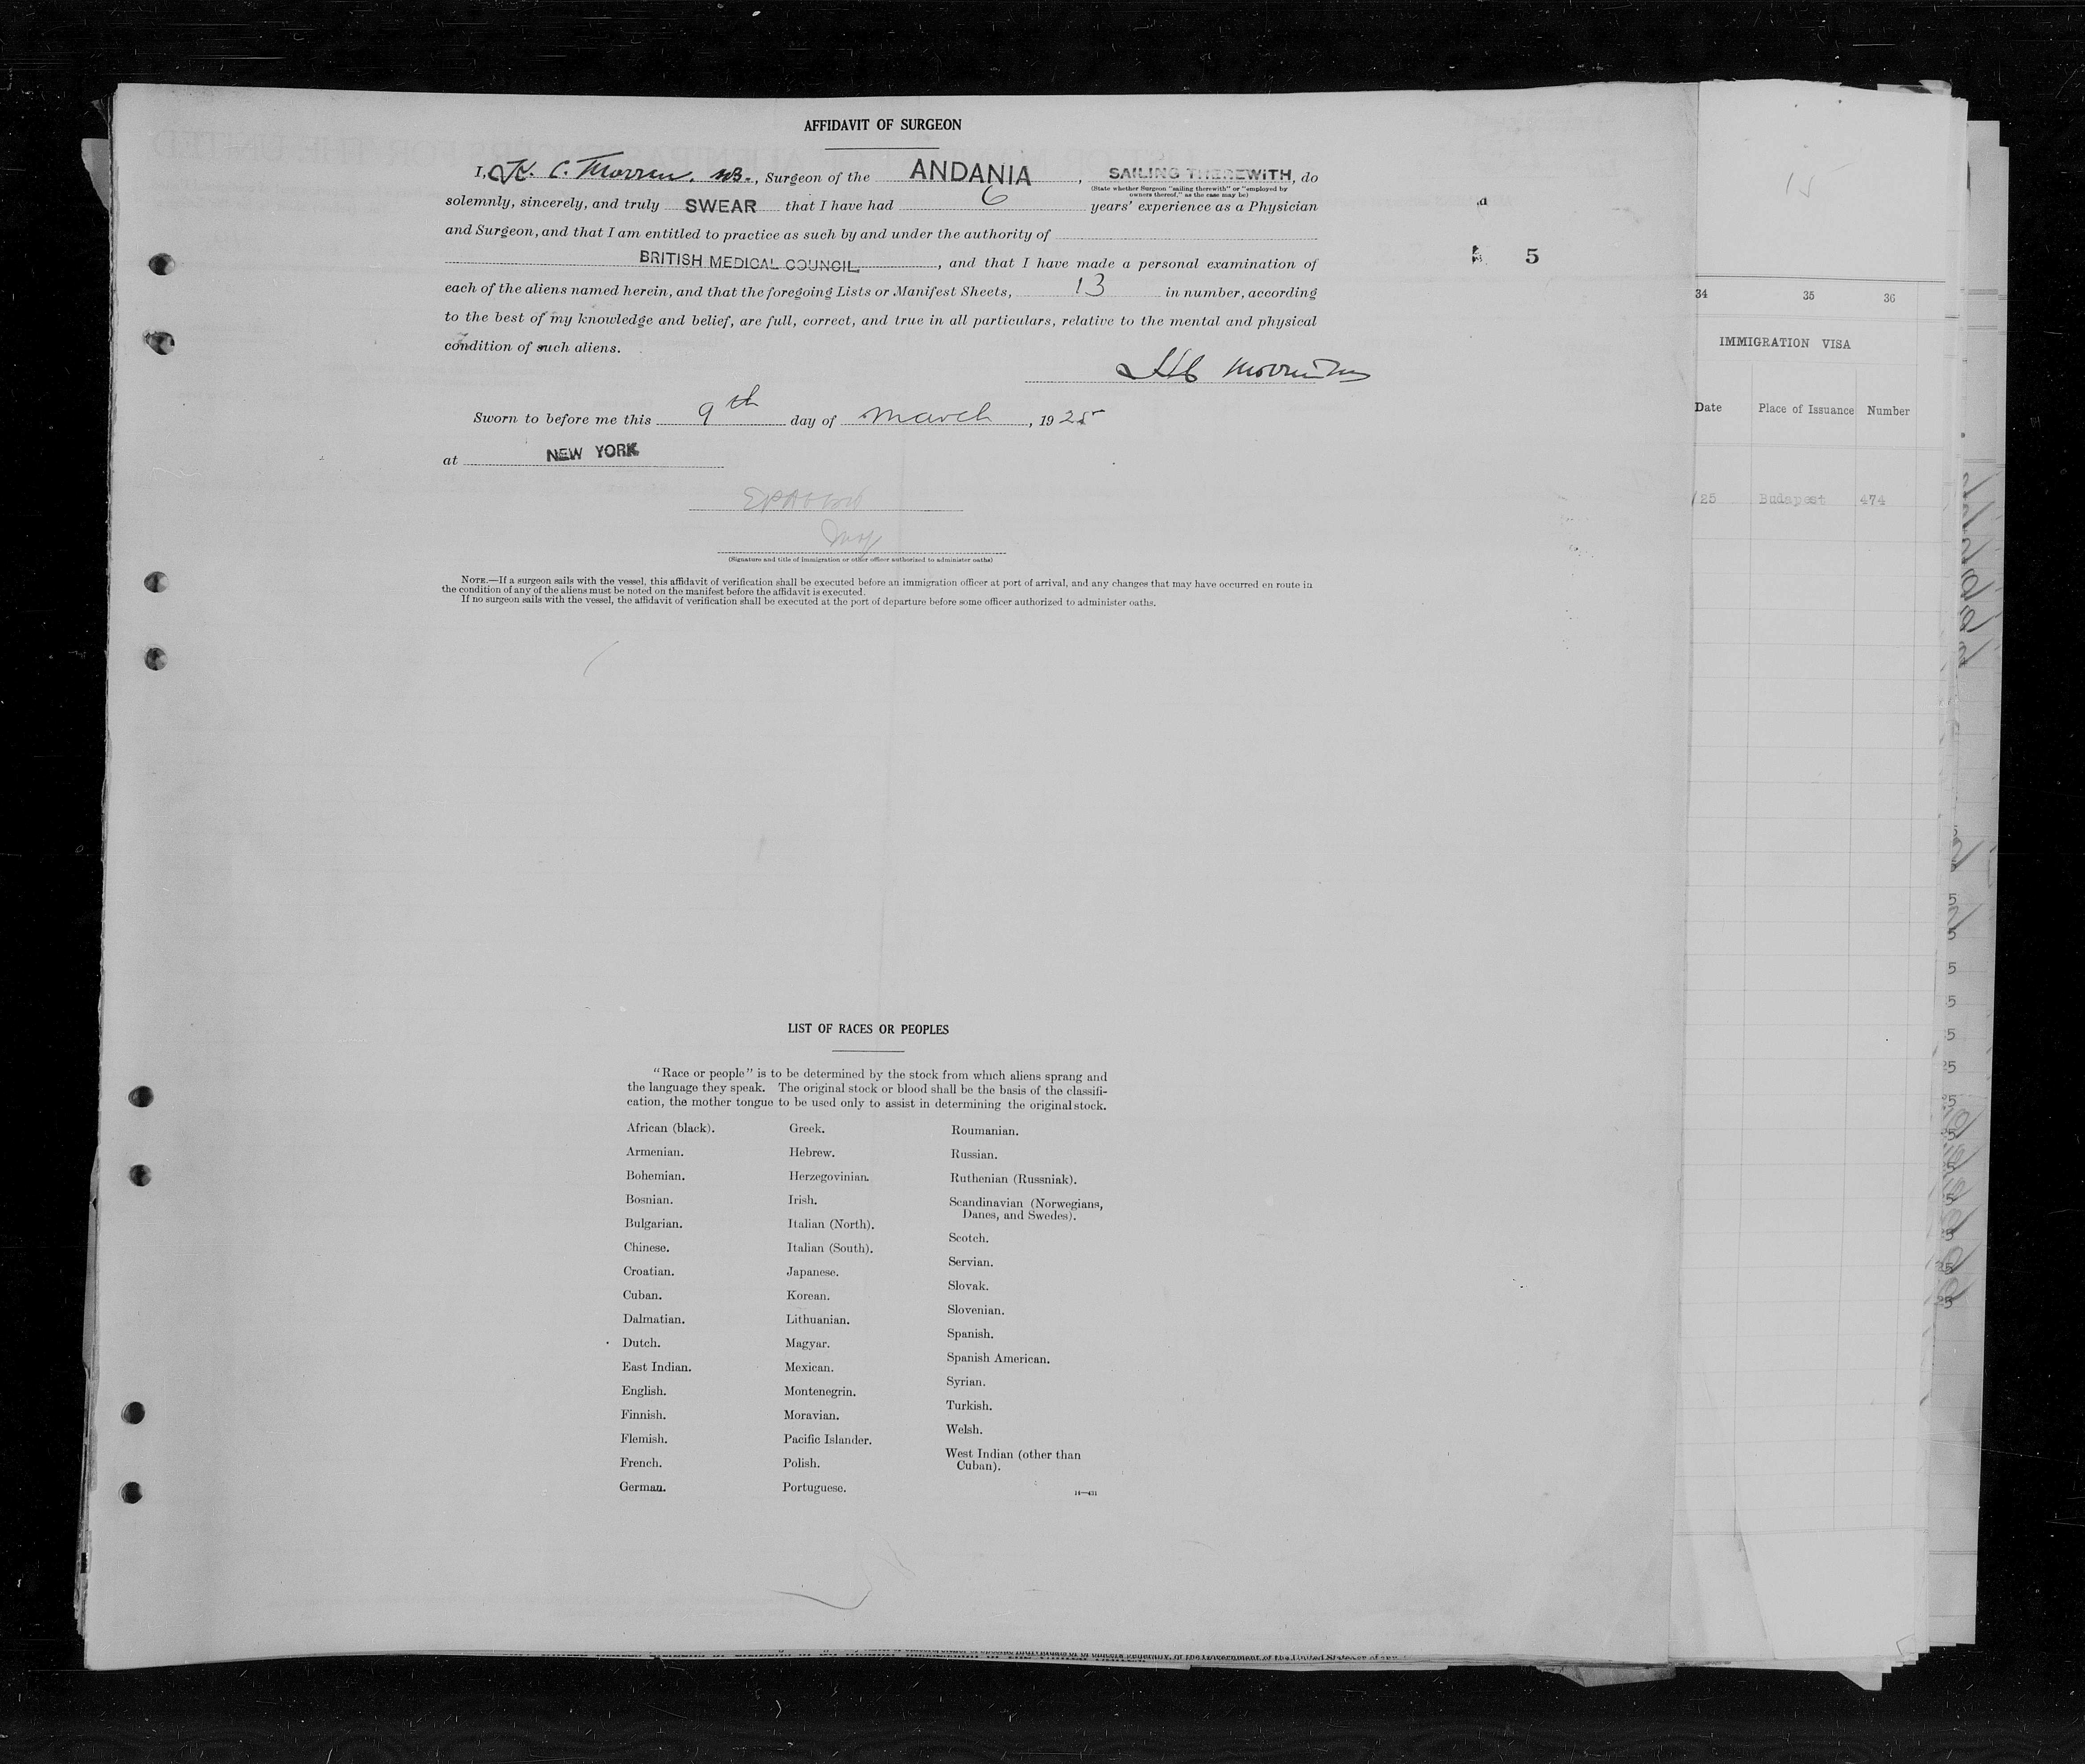 AFFIDAVIT OF SURGEON
I, H. C. Morren, MB., Surgeon of the ANDANIA, SAILING THEREWITH, do
(State whether Surgeon "sailing therewith" or "employed by
owners thereof," as the case may be)
solemnly, sincerely, and truly SWEAR that I have had 6 years' experience as a Physician
and Surgeon, and that I am entitled to practice as such by and under the authority of
BRITISH MEDICAL COUNCIL, and that I have made a personal examination of
each of the aliens named herein, and that the foregoing Lists or Manifest Sheets, 13 in number, according
to the best of my knowledge and belief, are full, correct, and true in all particulars, relative to the mental and physical
condition of such aliens.
Sworn to before me this 9th day of March, 1925
at NEW YORK
(Signature and title of immigration or other officer authorized to administer oaths)
NOTE.—If a surgeon sails with the vessel, this affidavit of verification shall be executed before an immigration officer at port of arrival, and any changes that may have occurred en route in
the condition of any of the aliens must be noted on the manifest before the affidavit is executed.
If no surgeon sails with the vessel, the affidavit of verification shall be executed at the port of departure before some officer authorized to administer oaths.
LIST OF RACES OR PEOPLES
"Race or people" is to be determined by the stock from which aliens sprang and
the language they speak. The original stock or blood shall be the basis of the classifi-
cation, the mother tongue to be used only to assist in determining the original stock.
African (black).
Armenian.
Bohemian.
Bosnian.
Bulgarian.
Chinese.
Croatian.
Cuban.
Dalmatian.
Dutch.
East Indian.
English.
Finnish.
Flemish.
French.
German.
Greek.
Hebrew.
Herzegovinian.
Irish.
Italian (North).
Italian (South).
Japanese.
Korean.
Lithuanian.
Magyar.
Mexican.
Montenegrin.
Moravian.
Pacific Islander.
Polish.
Portuguese.
Roumanian.
Russian.
Ruthenian (Russniak).
Scandinavian (Norwegians,
Danes, and Swedes).
Scotch.
Servian.
Slovak.
Slovenian.
Spanish.
Spanish American.
Syrian.
Turkish.
Welsh.
West Indian (other than
Cuban).
14—431
5
15
34 35 36
IMMIGRATION VISA
Date Place of Issuance Number
/25 Budapest 474